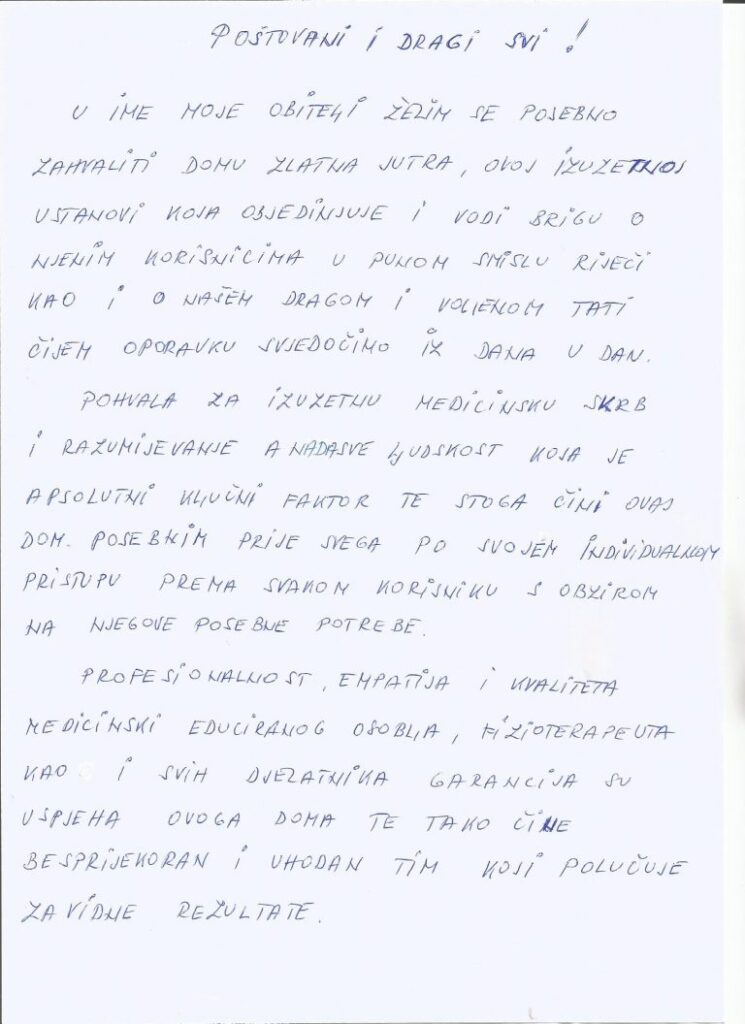 POŠTOVANI I DRAGI SVI !
U IME MOJE OBITELJI ŽELIM SE POSEBNO
ZAHVALITI DOMU ZLATNA JUTRA, OVOJ IZUZETNOJ
USTANOVI KOJA OBJEDINJUJE I VODI BRIGU O
NJENIM KORISNICIMA U PUNOM SMISLU RIJEČI
KAO I O NAŠEM DRAGOM I VOLJENOM TATI
ČIJEM OPORAVKU SVJEDOČIMO IZ DANA U DAN.
POHVALA ZA IZUZETNU MEDICINSKU SKRB
I RAZUMIJEVANJE A NADASVE LJUDSKOST KOJA JE
APSOLUTNI KLJUČNI FAKTOR TE STOGA ČINI OVAJ
DOM. POSEBNIM PRIJE SVEGA PO SVOJEM INDIVIDUALNOM
PRISTUPU PREMA SVAKOM KORISNIKU S OBZIROM
NA NJEGOVE POSEBNE POTREBE.
PROFESIONALNOST, EMPATIJA I KVALITETA
MEDICINSKI EDUCIRANOG OSOBLJA, FIZIOTERAPEUTA
KAO I SVIH DJELATNIKA GARANCIJA SU
USPJEHA OVOGA DOMA TE TAKO ČINE
BESPRIJEKORAN I UHODAN TIM KOJI POLUČUJE
ZAVIDNE REZULTATE.